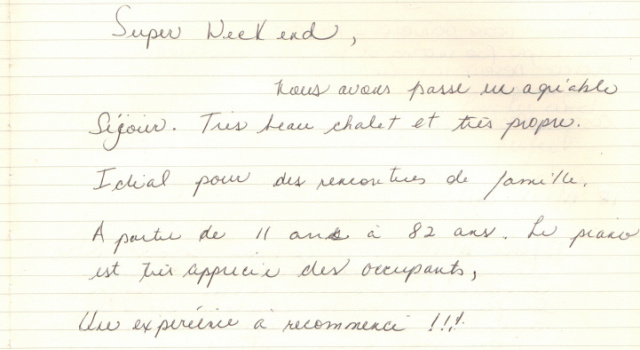 Super Week end,
Nous avons passé un agréable
Séjour. Très beau chalet et très propre.
Idéal pour des rencontres de famille.
A partir de 11 ans à 82 ans. Le piano
est très apprécié des occupants,
Une expérience à recommencé !!!